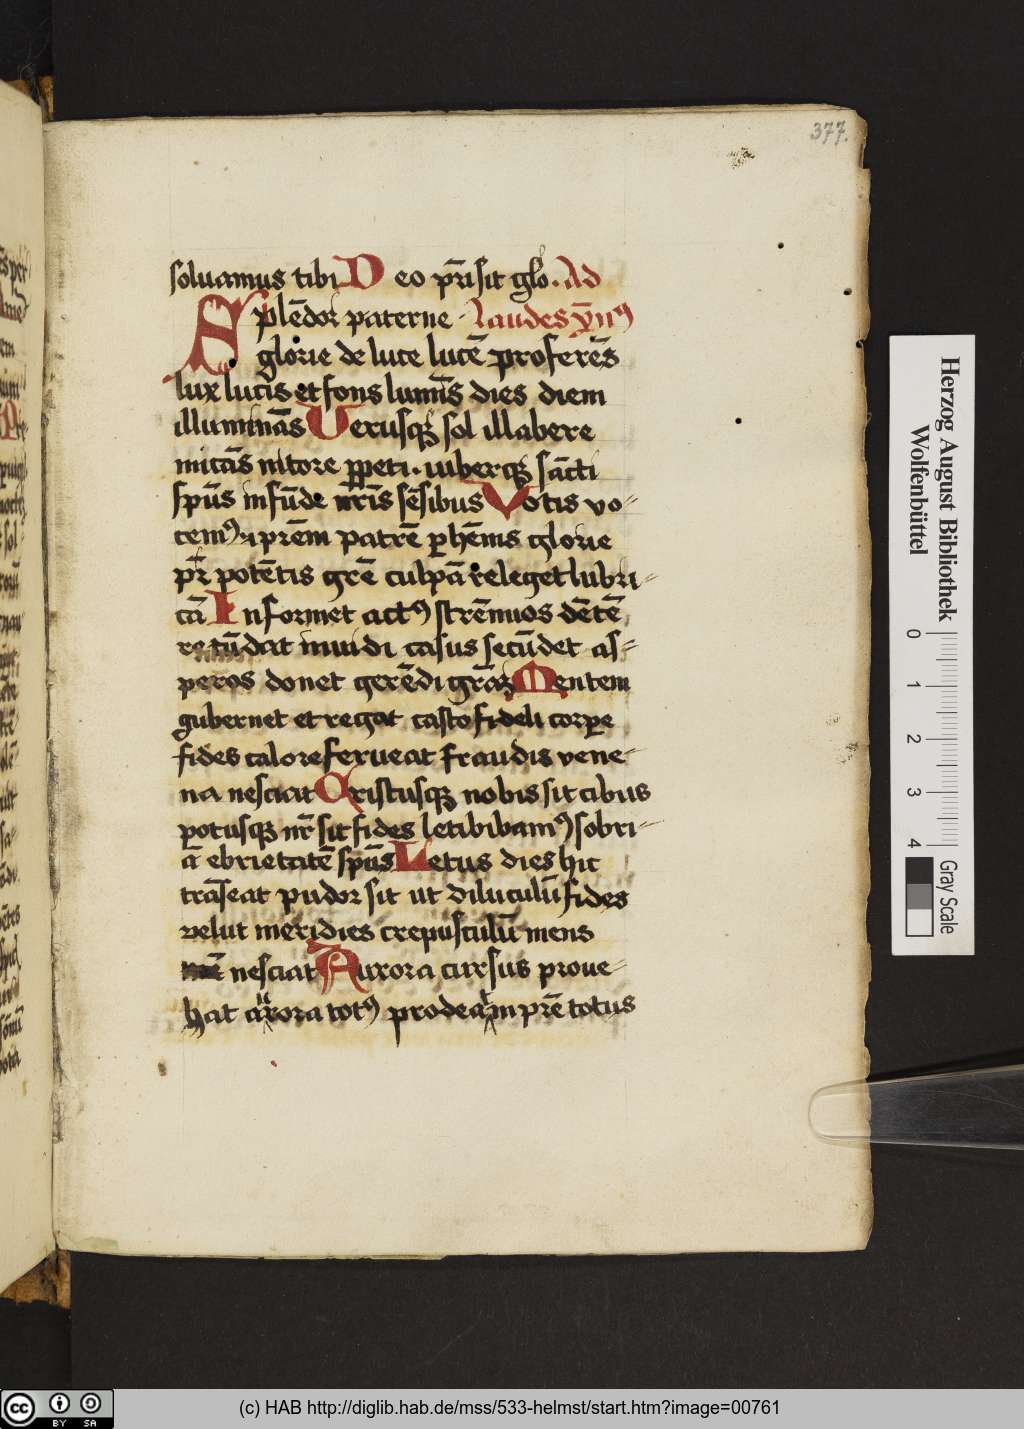 377.
soluamus tibi Deo pr̄i sit glo. Ad
Splēdor paterne Laudes ẏm̄⁹
glorie de luce lucē proferēs
lux lucis et fons lumīs dies diem
illuminās Verusqꝫ sol illabere
micās nitore ꝑpeti. iuberqꝫ sācti
sp̄us infūde nr̄is sēsibus Votis vo⸗
cem⁹ ⁊ p̄rem patrē ꝑhēnis glorie
pr̄ potētis grē culpā releget lubri⸗
cā Informet act⁹ strēnuos dētē
retūdat inuidi casus secūdet as⸗
peros donet gerēdi grāꝫ Mentem
gubernet et regat casto fideli corpe
fides calore ferueat fraudis vene⸗
na nesciat Cristusqꝫ nobis sit cibus
potusqꝫ nr̄ sit fides leti bibam⁹ sobri⸗
ā ebrietatē sp̄us Letus dies hic
trāseat pudor sit ut diluculū fides
velut meridies crepusculū mens
nesciat Aurora cursus proue⸗
hat aurora tot⁹ prodeat in pr̄e totus
Herzog August Bibliothek
Wolfenbüttel
0 1 2 3 4
Gray Scale
cc BY SA
(c) HAB http://diglib.hab.de/mss/533-helmst/start.htm?image=00761